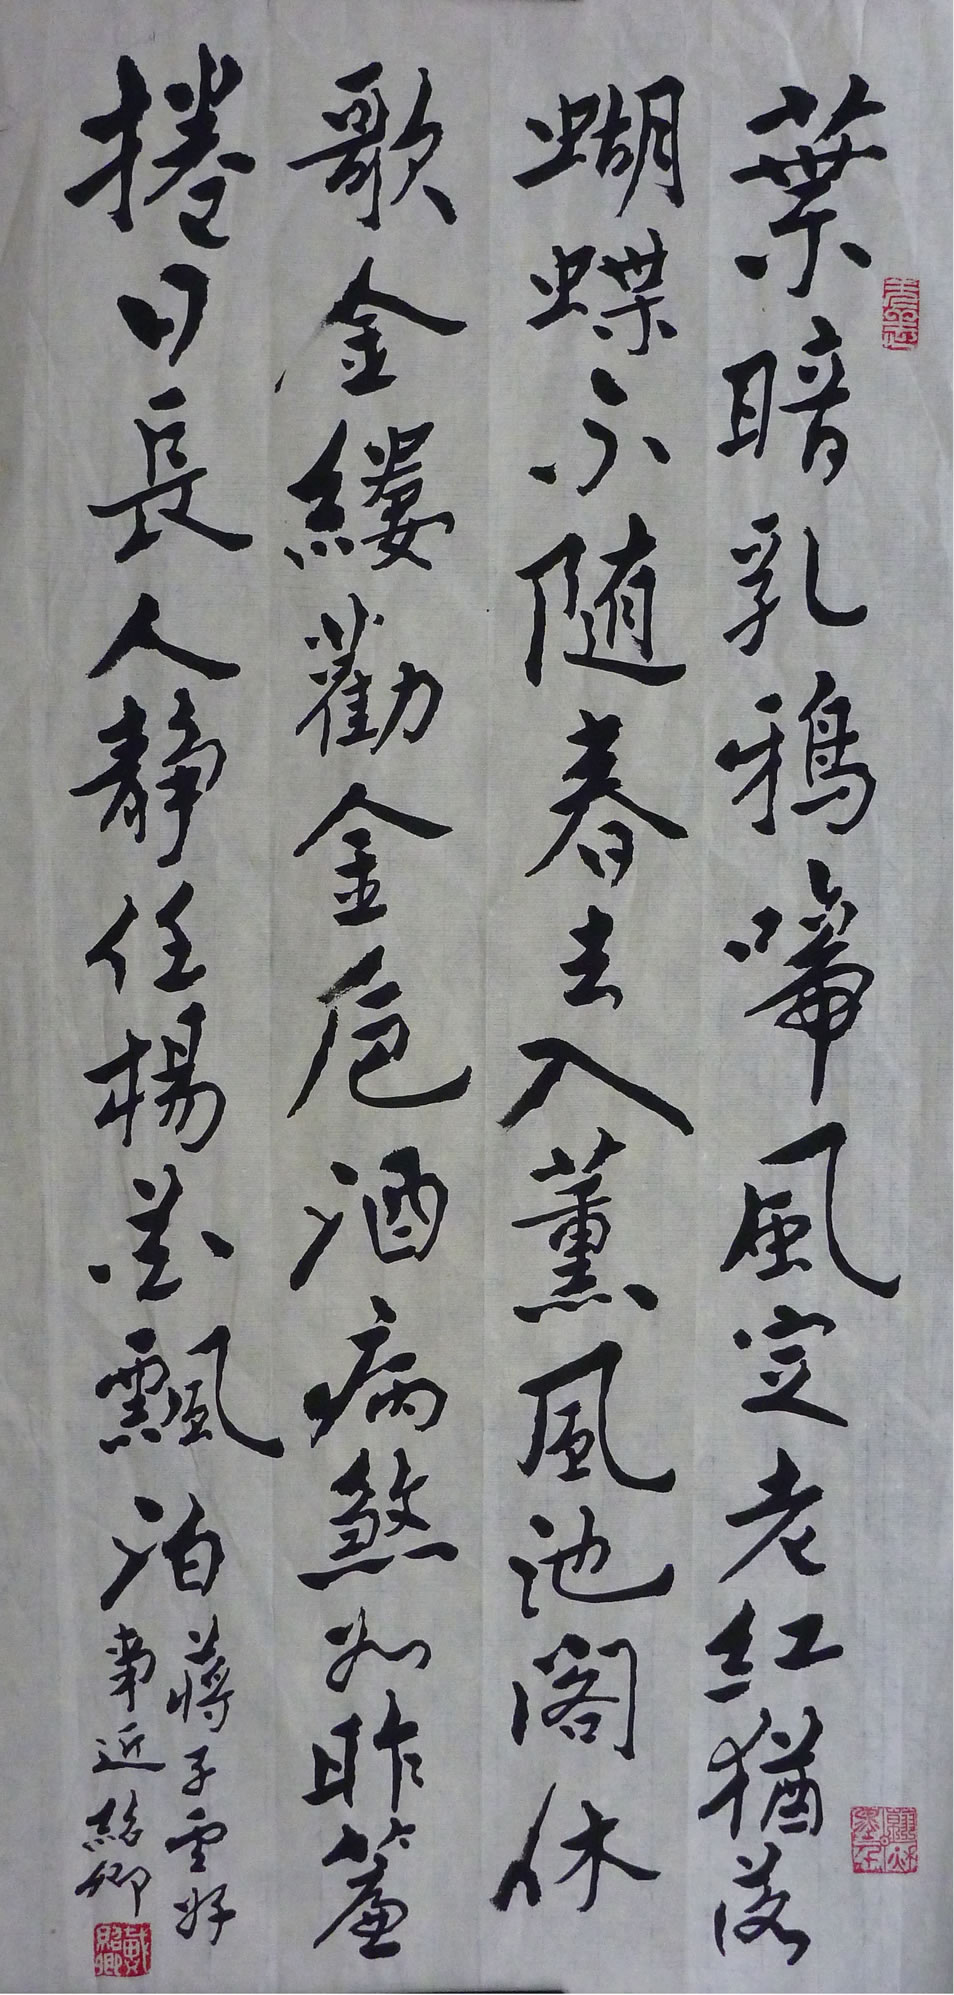 葉暗乳鴉啼風定老紅猶落
蝴蝶不随春去入薰風池閣休
歌金縷勸金卮酒病煞如昨簾
捲日長人靜任楊花飄泊
蔣子雲好
事近紹卿
戴紹卿